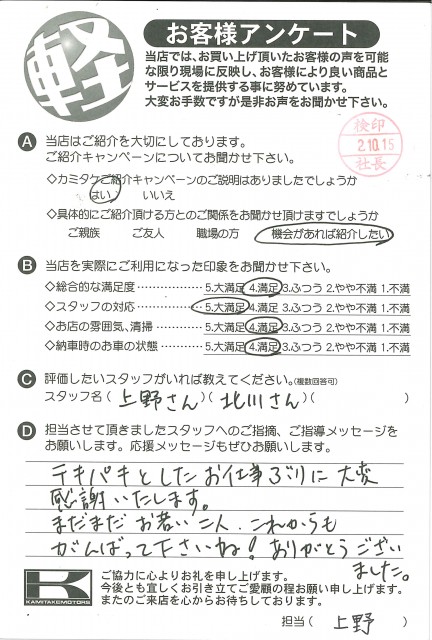 軽
お客様アンケート
当店では、お買い上げ頂いたお客様の声を可能
な限り現場に反映し、お客様により良い商品と
サービスを提供する事に努めています。
大変お手数ですが是非お声をお聞かせ下さい。
検印
2.10.15
社長
A 当店はご紹介を大切にしております。
ご紹介キャンペーンについてお聞かせ下さい。
◇カミタケご紹介キャンペーンのご説明はありましたでしょうか
はい いいえ
◇具体的にご紹介頂ける方とのご関係をお聞かせ頂けますでしょうか
ご親族 ご友人 職場の方 機会があれば紹介したい
B 当店を実際にご利用になった印象をお聞かせ下さい。
◇総合的な満足度………………5.大満足 4.満足 3.ふつう 2.やや不満 1.不満
◇スタッフの対応………………5.大満足 4.満足 3.ふつう 2.やや不満 1.不満
◇お店の雰囲気、清掃…………5.大満足 4.満足 3.ふつう 2.やや不満 1.不満
◇納車時のお車の状態…………5.大満足 4.満足 3.ふつう 2.やや不満 1.不満
C 評価したいスタッフがいれば教えてください。(複数回答可)
スタッフ名(上野さん)(北川さん)( )
D 担当させて頂きましたスタッフへのご指摘、ご指導メッセージを
お願いします。応援メッセージもぜひお願いします。
テキパキとしたお仕事ぶりに大変
感謝いたします。
まだまだお若い二人、これからも
がんばって下さいね!ありがとうござい
ました。
K
KAMITAKE MOTORS
ご協力に心よりお礼を申し上げます。
今後とも宜しくお引き立てご愛顧の程お願い申し上げます。
またのご来店を心からお待ちしております。
担当(上野)